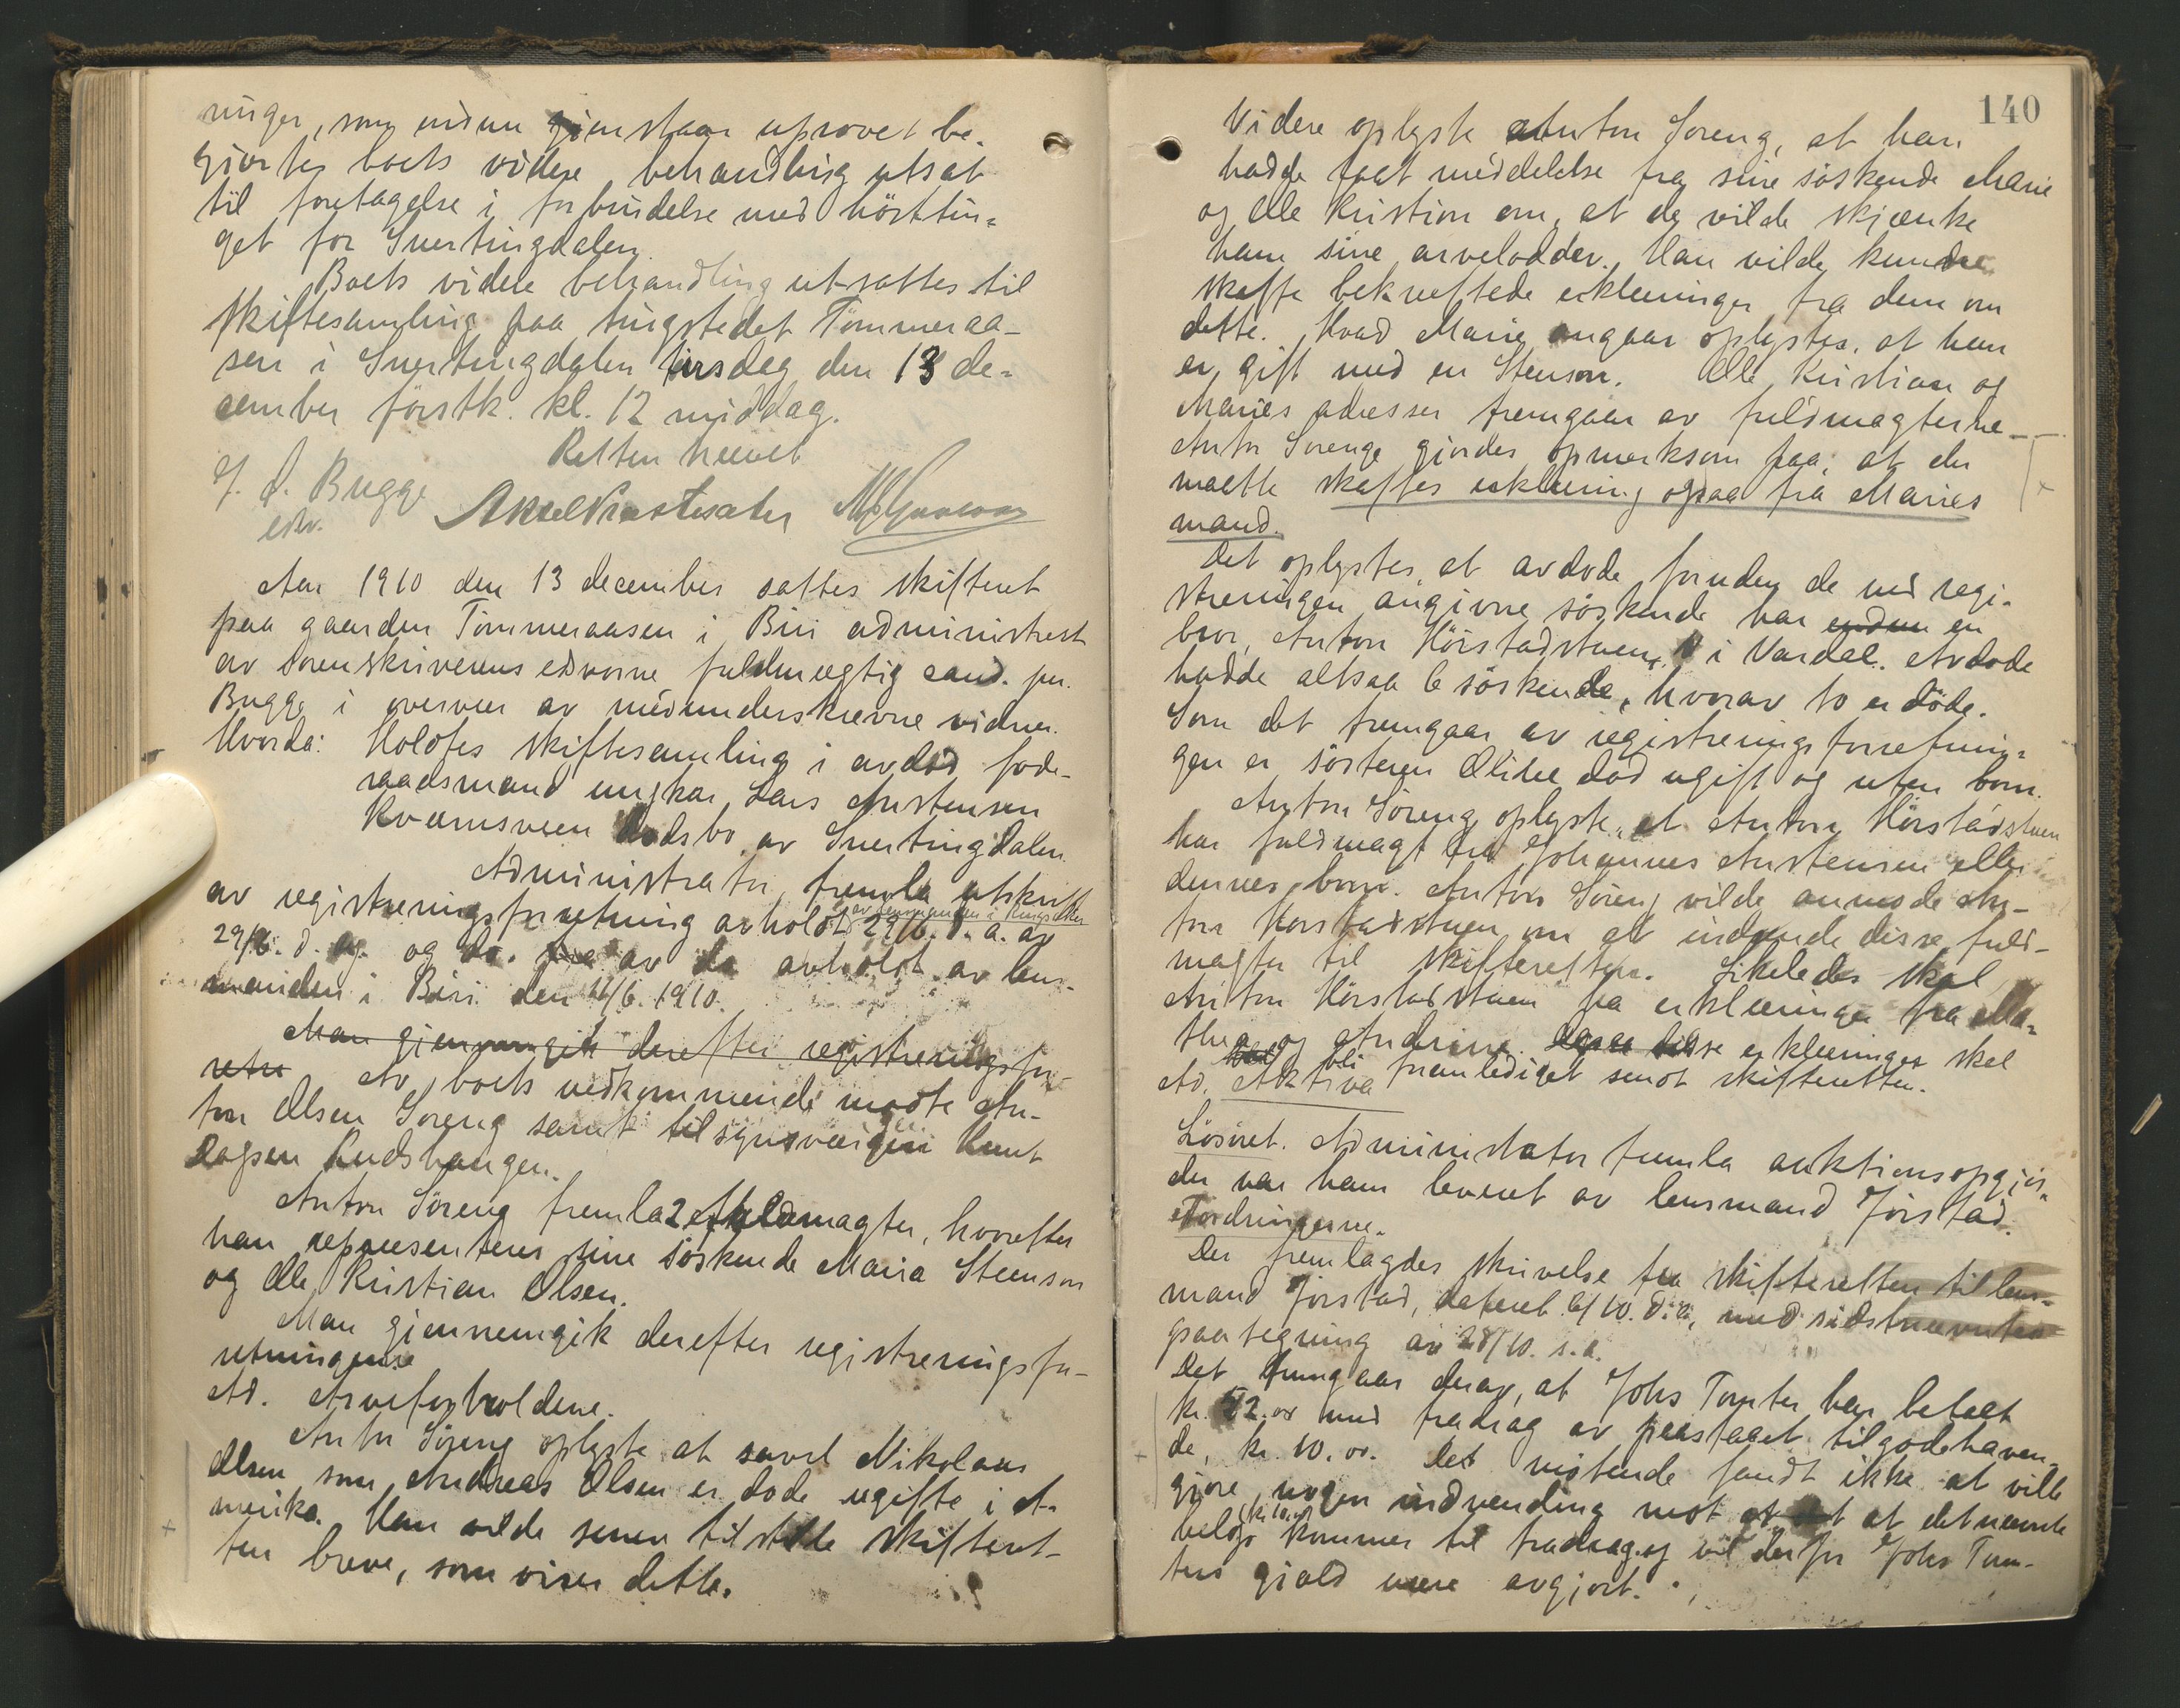 ninger, som endnu gjenstaar uprøvet be-
gjærtes boets videre behandling utsat
til foretagelse i forbindelse med hösttin-
get for Snertingdalen.
Boets videre behandling utsattes til
skiftesamling paa tingstedet Tömmeraa-
sen i Snertingdalen tirsdag den 13 de-
cember förstk. kl. 12 middag.
Retten hævet
J. S. Bugge
edsv.
Aar 1910 den 13 december sattes skifteret
paa gaarden Tömmeraasen i Biri administrert
av sorenskriverens edsvorne fuldmægtig cand. jur.
Bugge i overvær av medunderskrevne vidner.
Hvorda: Holdtes skiftesamling i avdöd föde-
raadsmand ungkar Lars Austensen
Kværnsveen dödsbo av Snertingdalen.
Administrator fremla utskrift
av registreringsforretning avholdt 29/6. d. a. av
av lensmanden i Ringsaker
29/6. d. a. og do. fra av do avholdt av lens-
manden i Biri den 11/6. 1910.
Man gjennemgik derefter registreringsfor-
retn Av boets vedkommende mödte An-
ton Olsen Söreng samt tilsynsværgen Knut
Anton Söreng fremla 2 fuldmagter, hvorefter
han repræsenterer sine söskende Maria Steenson
og Ole Kristian Olsen.
Man gjennemgik derefter registreringsfor-
retningerne
Ad. Arveforholdene.
Anton Söreng oplyste at savel Nikolaus
Olsen som Andreas Olsen er döde ugifte i A-
merika. Han vilde senere tilstille skifteret-
ten breve, som viser dette.
140
Videre oplyste Anton Söreng, at han
hadde faat meddelelse fra sine söskende Marie
og Ole Kristian om, at de vilde skjænke
ham sine arvelodder. Han vilde kunne
skaffe bekræftede erklæringer fra dem om
dette. Hvad Marie angaar oplystes, at hun
er gift med en Stenson. Ole Kristian og
Maries adresser fremgaar av fuldmagterne.
Anton Sorenge gjordes opmerksom paa, at der
maatte skaffes erklæring ogsaa fra Maries
mand.
Det oplystes, at avdöde foruden de ved regi-
streringen angivne söskende har endnu en
bror, Anton Hörstadstuen i Vardal. Avdöde
hadde altsaa 6 söskende, hvorav to er döde.
Som det fremgaar av registreringsforretnin-
gen er sösteren Oline död ugift og uten børn.
Anton Söreng oplyste, at Anton Hörstadstuen
har fuldmagt fra Johannes Austensen eller
dennes børn. Anton Söreng vilde anmode An-
ton Hörstadstuen om at indsende disse fuld-
magter til skifteretten. Likeledes skal
Anton Hörstadstuen faa erklæringer fra Ma-
thea og Andrine. Disse erklæringer skal
bli fremlediget senest skifteretten.
Ad. Aktiva
Lösöret. Administrator fremla auktionsopgjör,
der var ham leveret av lensmand Jörstad.
Fordringerne.
Der fremlagdes skrivelse fra skifteretten til lens-
mand Jörstad, dateret 6/10. d. a., med sidstnævntes
paategning av 28/10. s. a.
Det fremgaar derav, at Johs Tomter har betalt
kr. 52.00 med fradrag av paastaaet tilgodehaven-
de, kr. 10.00. Det mötende fandt ikke at ville
gjöre nogen indvending mot at det at det nævnte
belöp (kr 10.00) kommer til fradrag og vil derfor Johs Tom-
ters gjæld være avgjort.